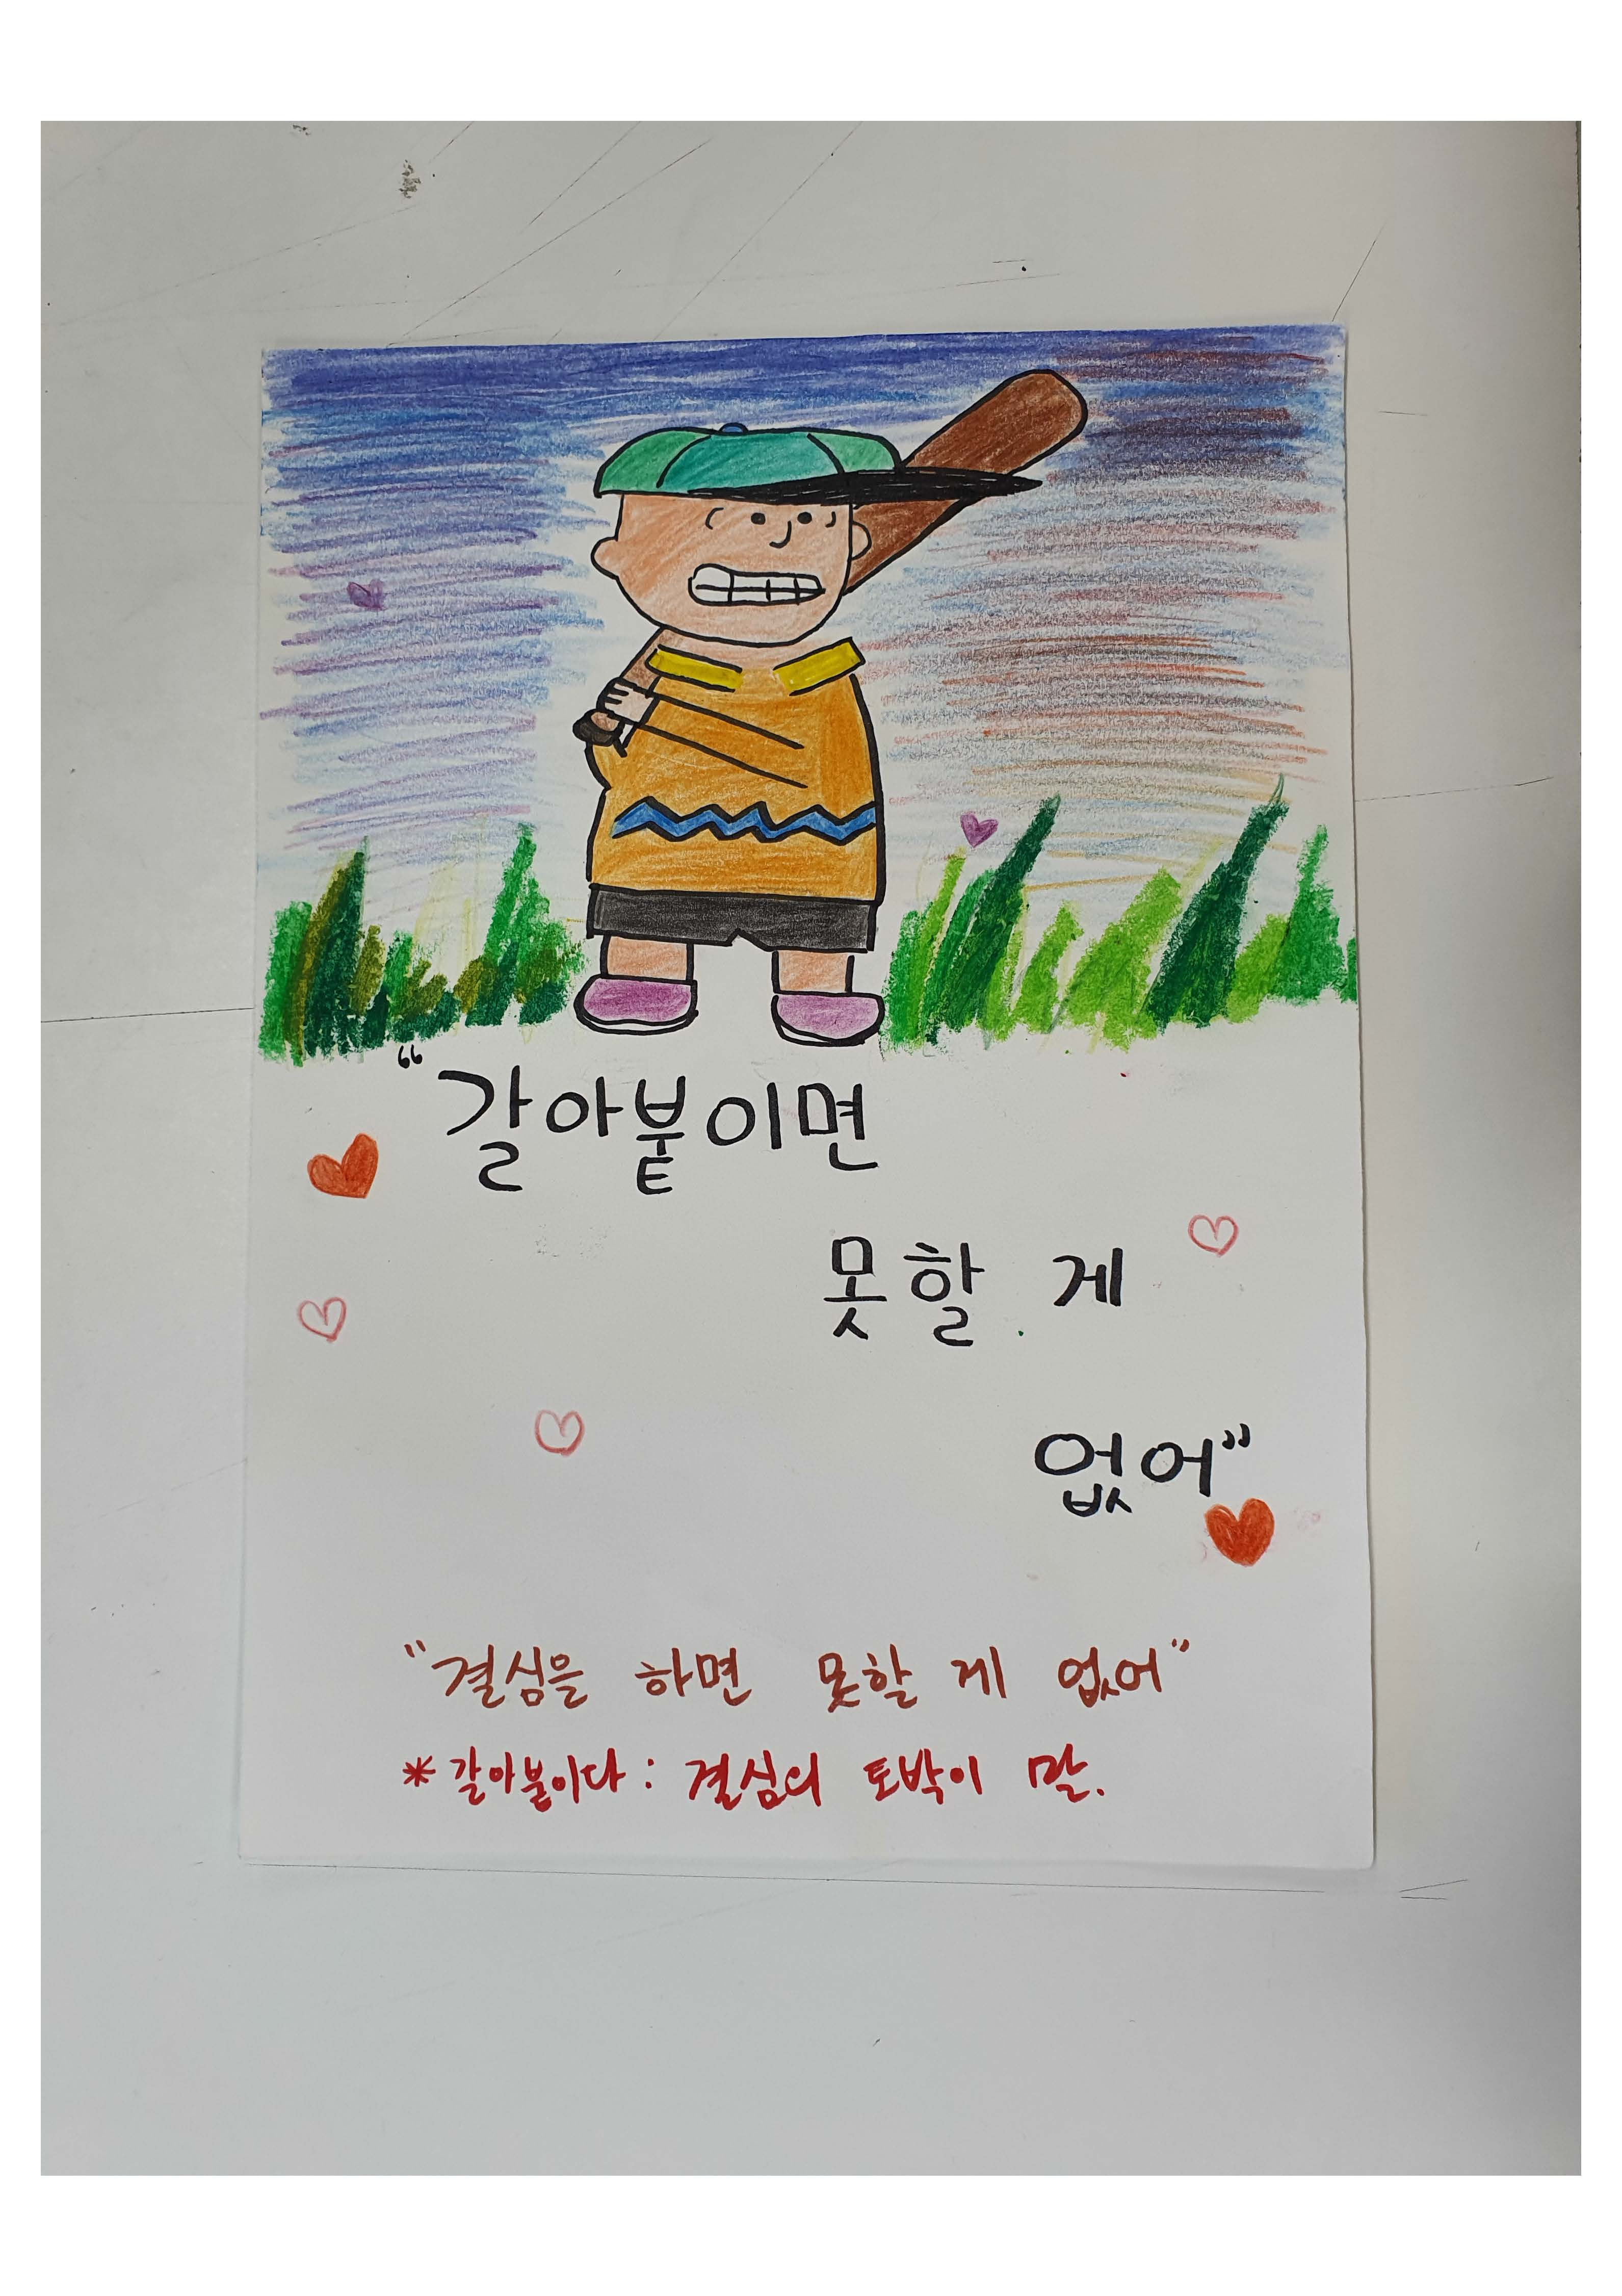 “갈아붙이면
못할 게
없어”
"결심을 하면 못할 게 없어"
*갈아붙이다 : 결심의 토박이 말.